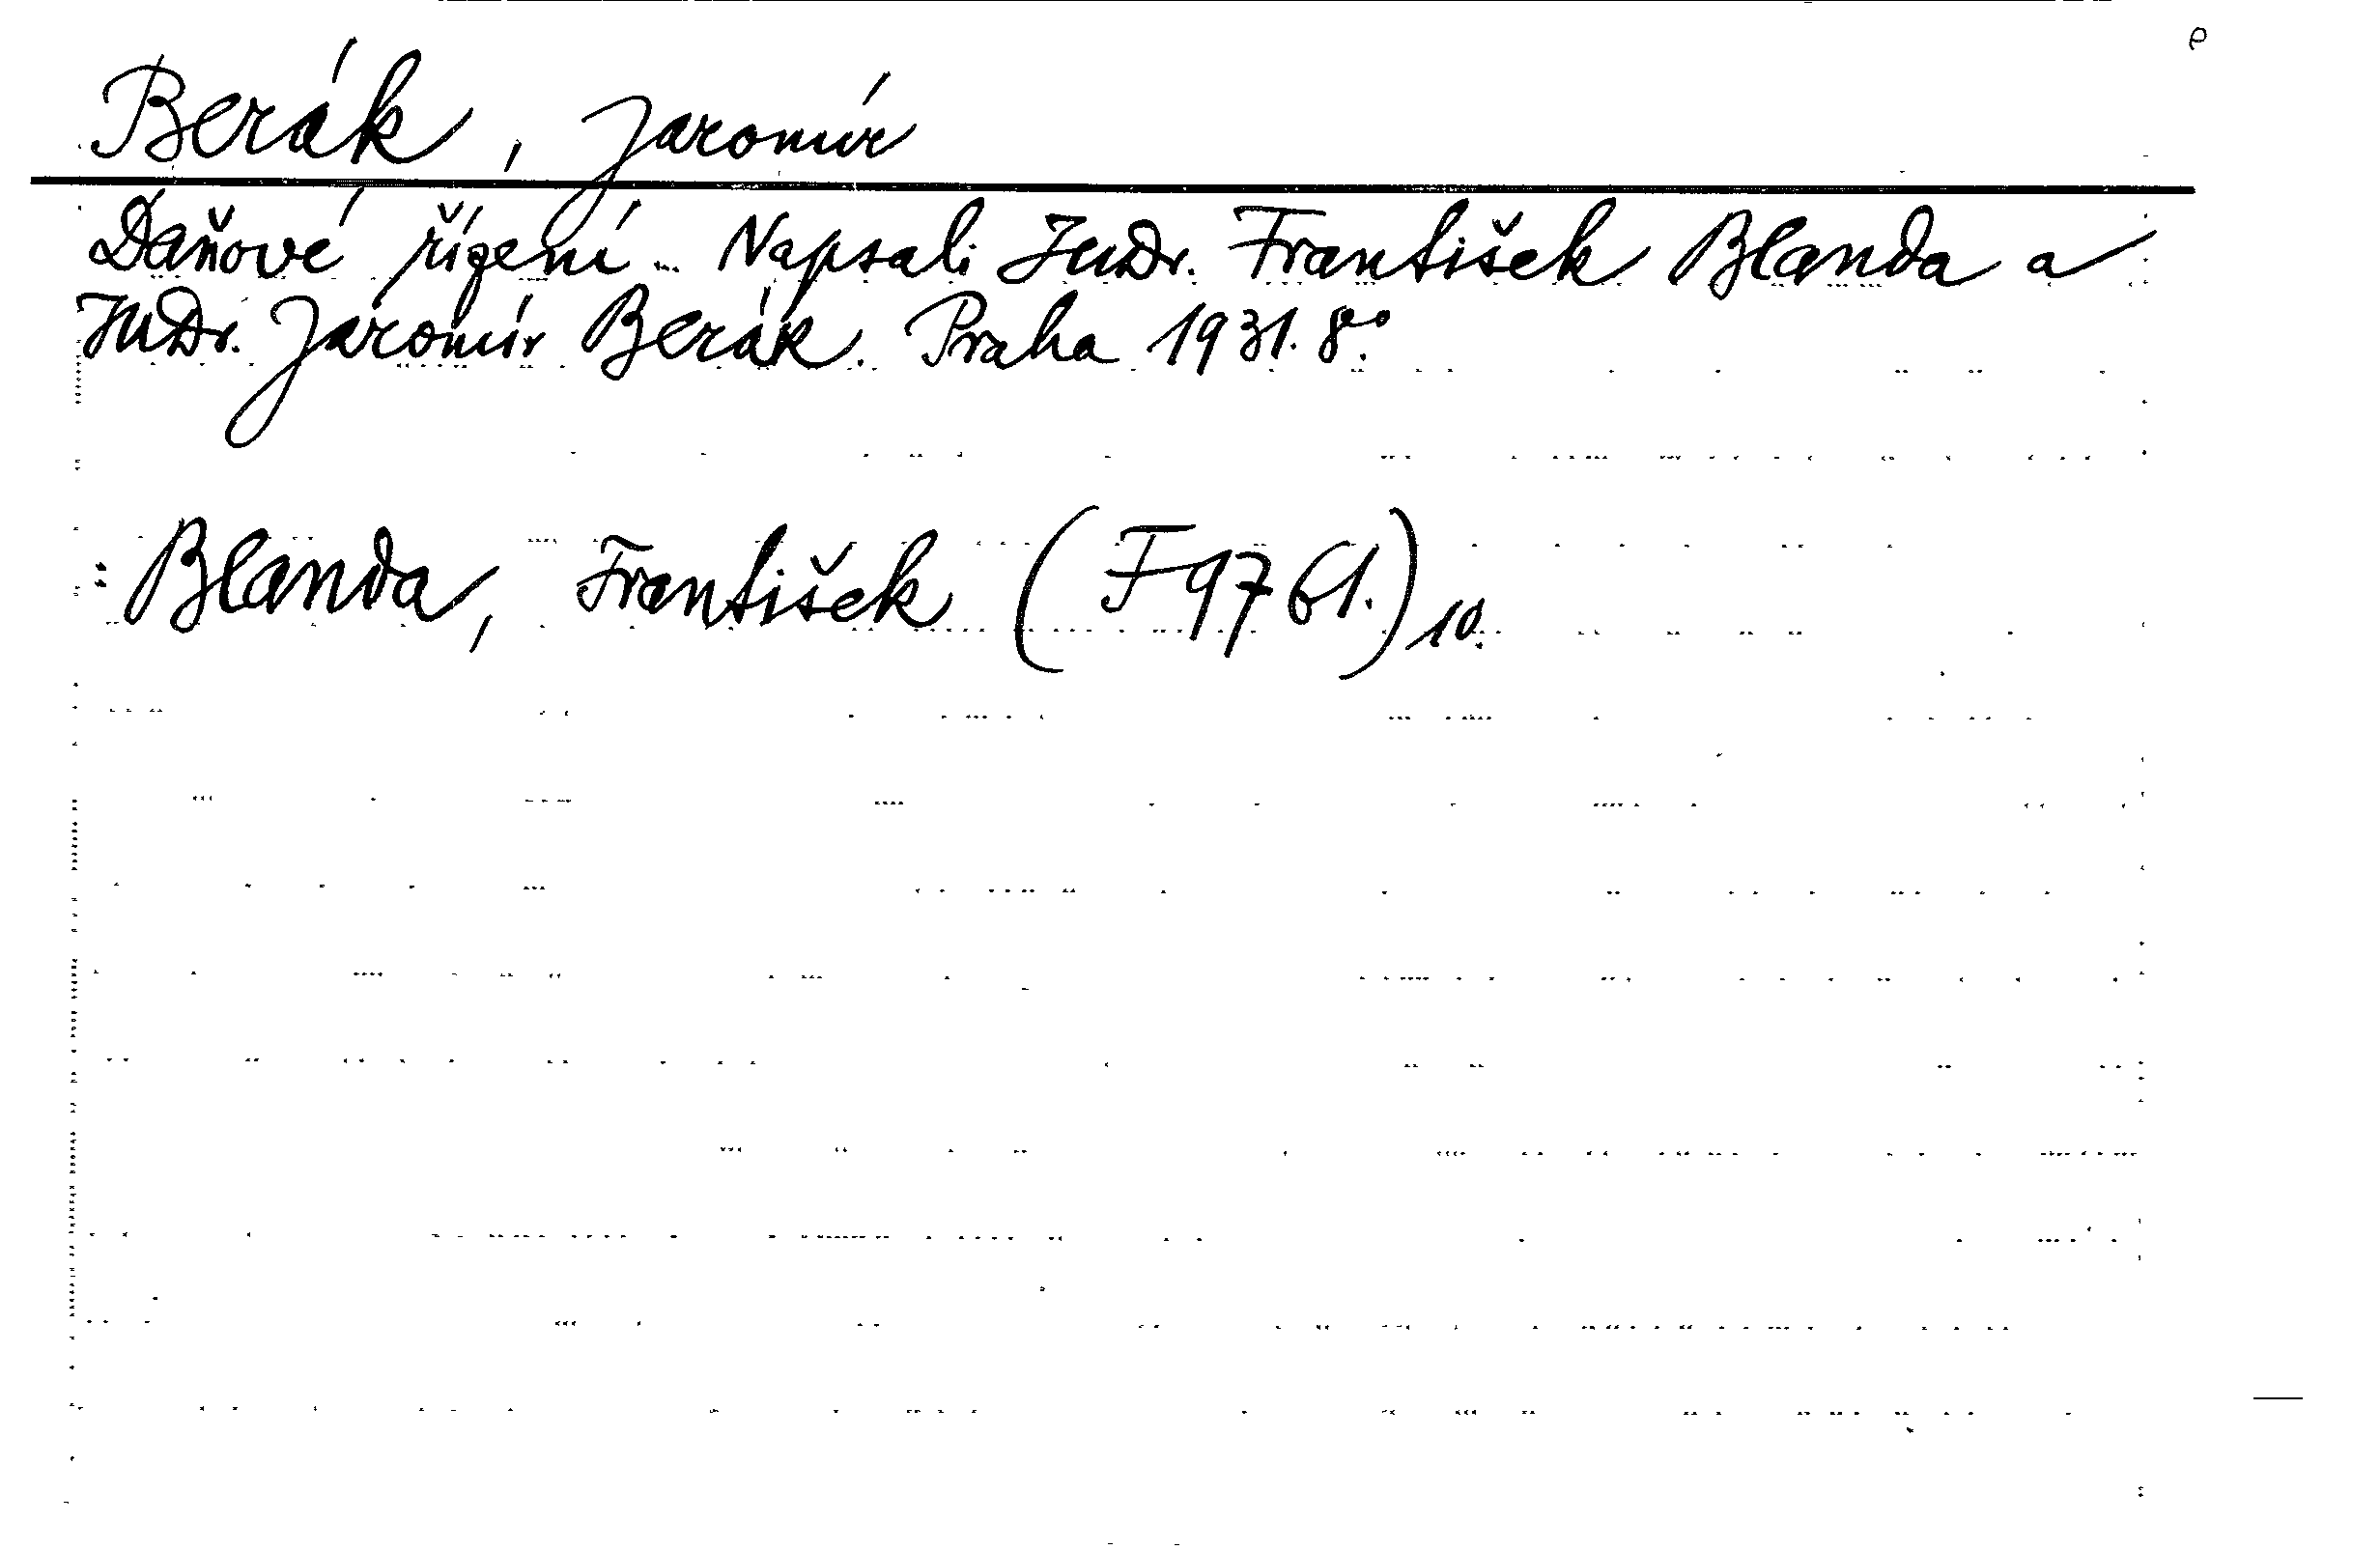 Berák, Jaromír
Daňové řízení... Napsali JuDr. František Blanda a
JUDr. Jaromír Berák. Praha 1931. 8°.
: Blanda, František (F 9761.) 10.